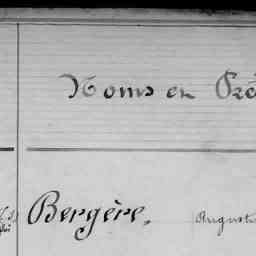 Noms en Pré
Bergère, Augusti